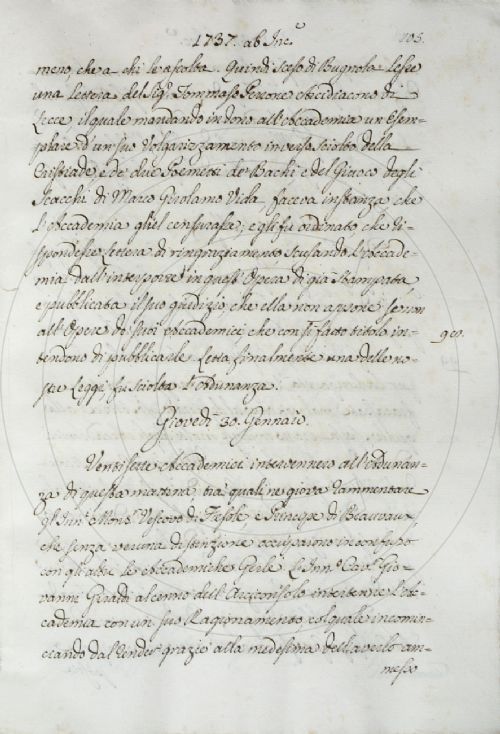 1737. ab Inc.e
105.
meno, che a chi le ascolta. Quindi sceso di Bugnola lesse
una Lettera del Sig.r Tommaso Perrone Arcidiacono di
Lecce il quale mandando in dono all'Accademia un Esem-
plare d'un suo Volgarizzamento in verso sciolto della
Cristiade, e de' due Poemetti de' Bachi e del Giuoco degli
Scacchi di Marco Girolamo Vida, faceva instanza che
l'Accademia gliel censurasse; e gli fu ordinato che ri-
spondesse Lettera di ringraziamento scusando l'Accade-
mia dall'interporre in quest'Opera di già stampata,
e pubblicata il suo giudizio, che ella non appone se non
all'Opere de' suoi Accademici, che con sì fatto titolo in-
tendono di pubblicarle. Letta finalmente una delle no-
stre Leggi, fu sciolta l'Adunanza.
Giovedì 30. Gennaio.
Ventisette Accademici intervennero all'Aduna-
za di questa mattina, tra' quali ne giova rammentare
gl'Inn.i Mons.r Vescovo di Fiesole, e Principe di Beauvau,
che senza veruna distinzione occuparono in confuso
con gli altri le Accademiche Gerle. L'Inn.o Cav.r Gio-
vanni Giraldi al cenno dell'Arciconsolo intertenne l'Ac-
cademia con un suo Ragionamento col quale incomin-
ciando dal render grazie alla medesima dell'averlo am-
messo